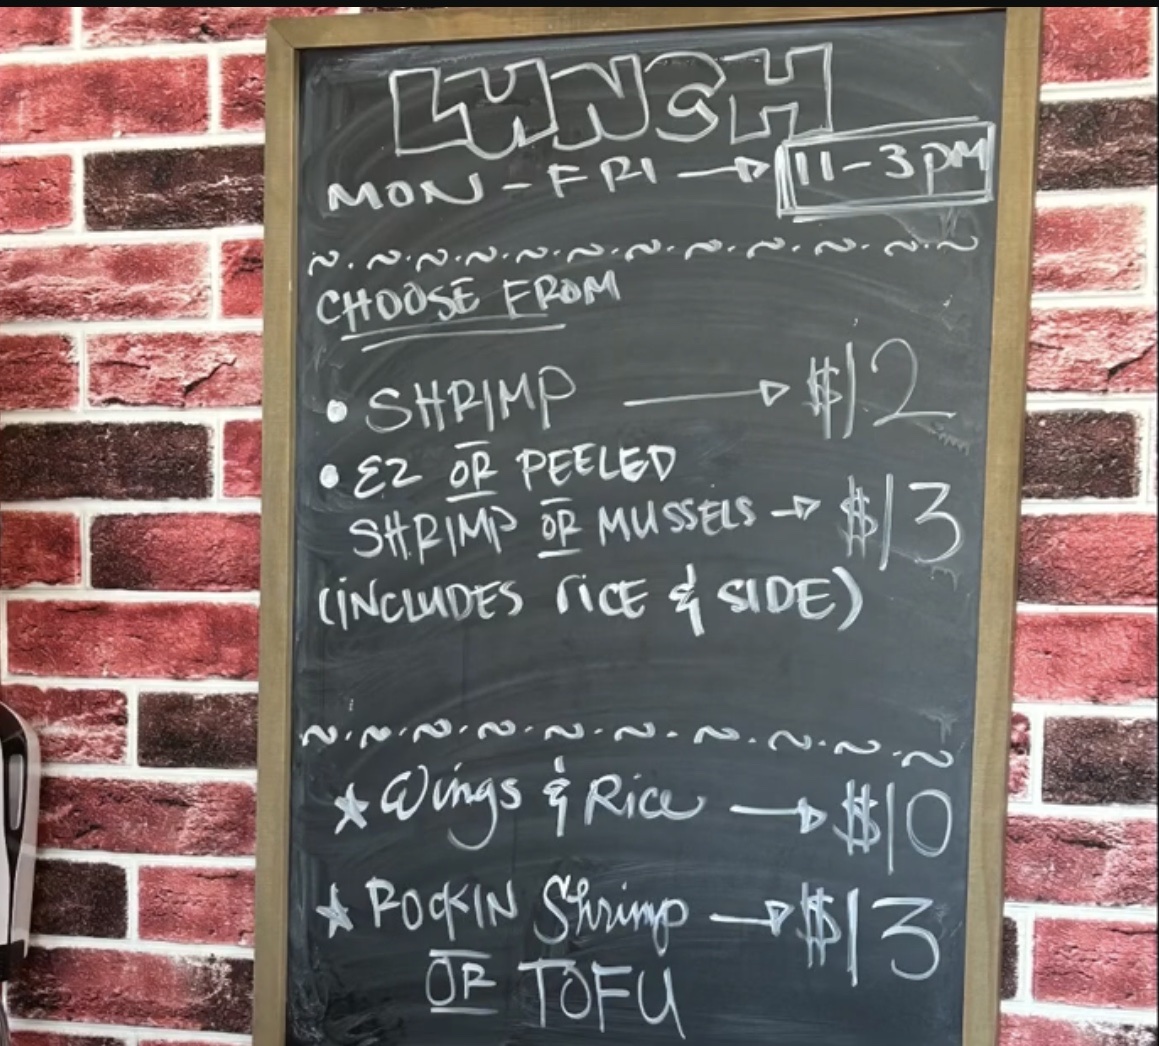 LUNCH
MON - FRI → 11-3PM
CHOOSE FROM
• SHRIMP → $12
• EZ OR PEELED
SHRIMP OR MUSSELS → $13
(INCLUDES RICE & SIDE)
★ Wings & Rice → $10
★ ROCKIN Shrimp → $13
OR TOFU